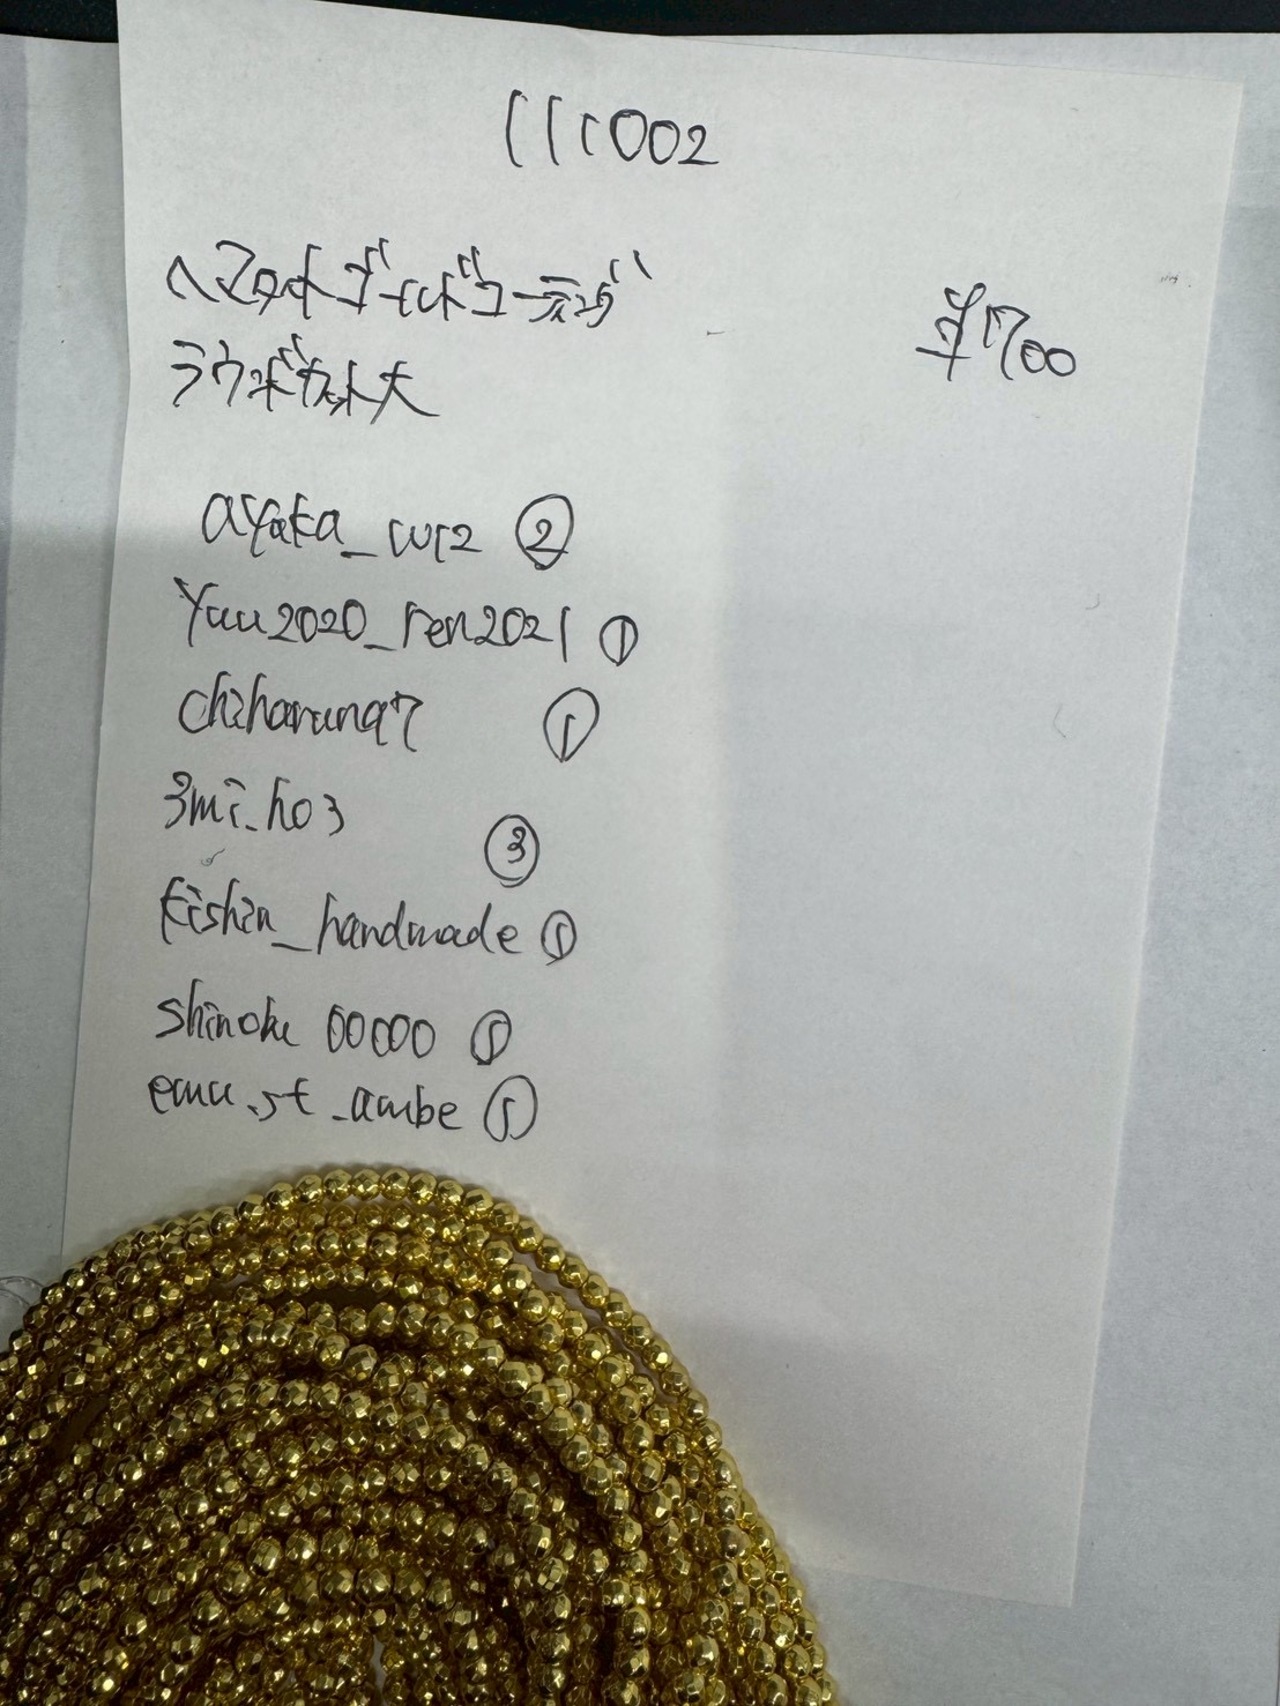 111002
ヘマタイトゴールドコーティング
ラウンドカット大
¥1700
ayaka_wr2 ②
Yuu2020_ren2021 ①
chiharuna7 ①
3mi.ho3 ③
kishin_handmade ①
shinoku 00000 ①
emu.st_ambe ①